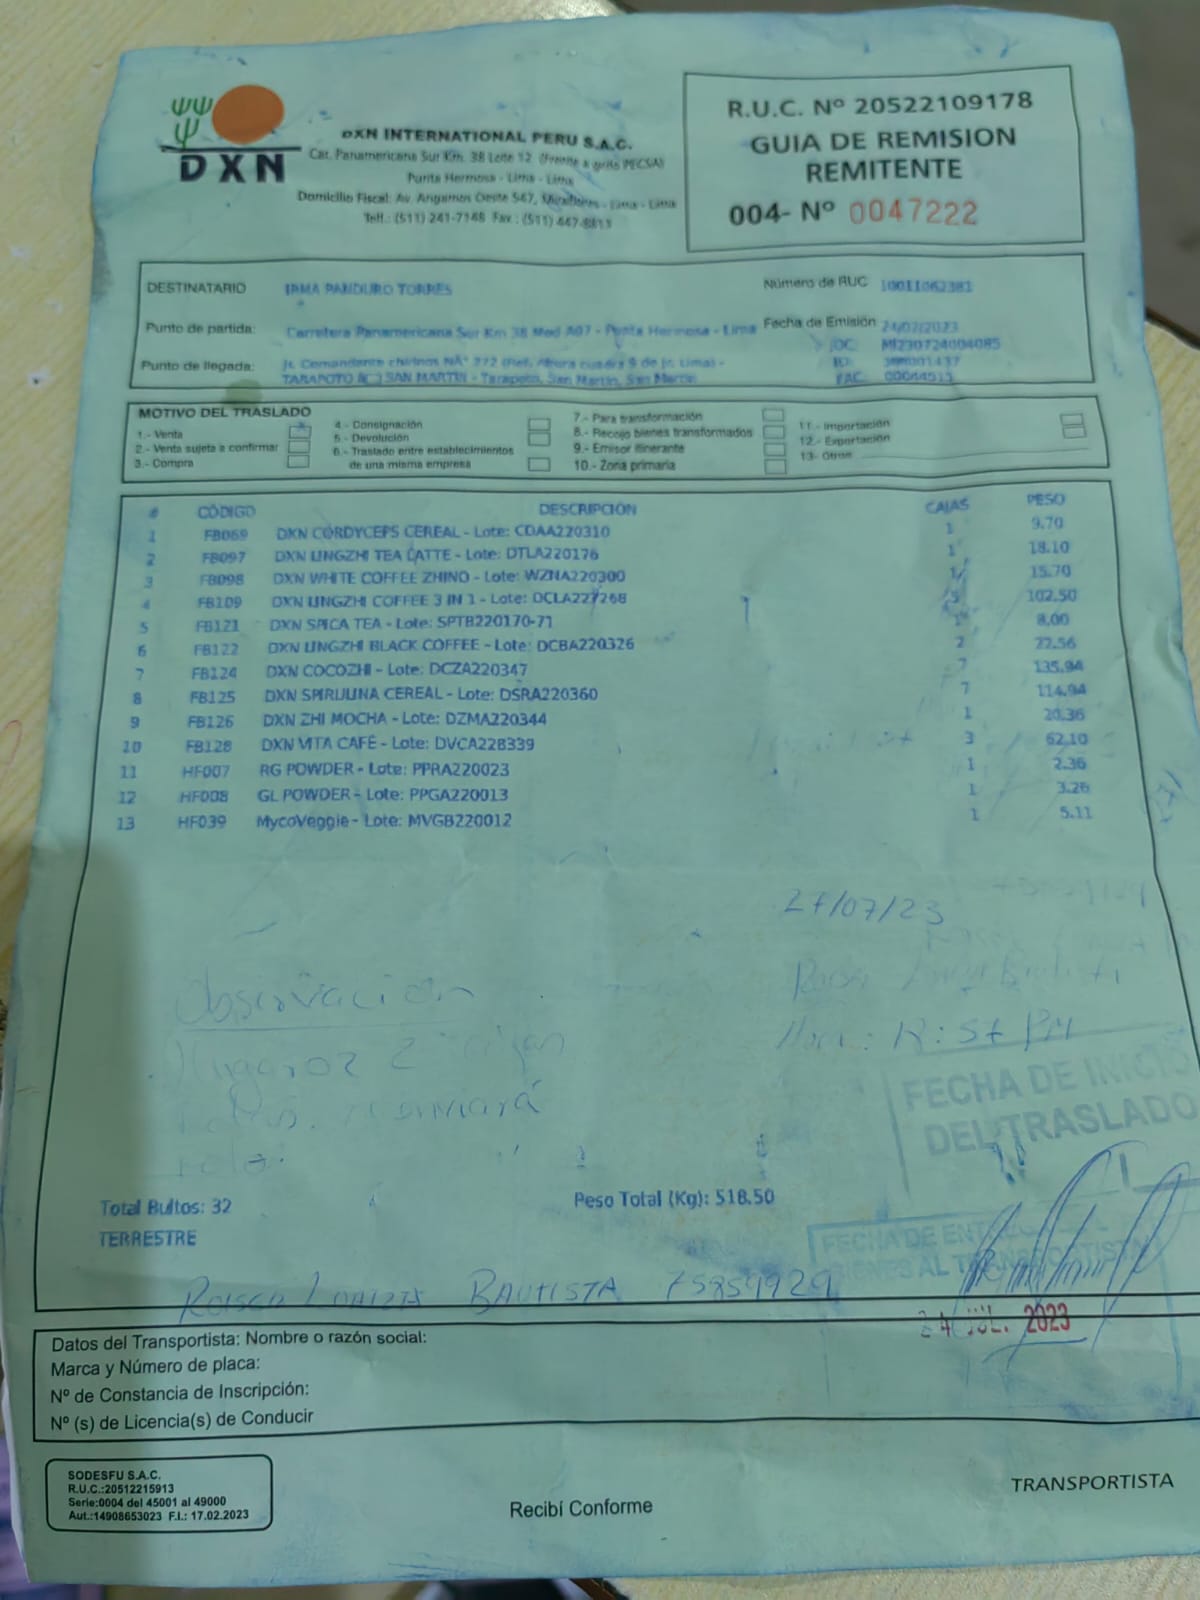 DXN
DXN INTERNATIONAL PERU S.A.C.
Car. Panamericana Sur Km. 38 Lote 12 (Frente a grifo PECSA)
Punta Hermosa - Lima - Lima
Domicilio Fiscal: Av. Angamos Oeste 547, Miraflores - Lima - Lima
Telf.: (511) 241-7148 Fax.: (511) 447-8813
R.U.C. Nº 20522109178
GUIA DE REMISION
REMITENTE
004- Nº 0047222
DESTINATARIO IRMA PANDURO TORRES Número de RUC 10011062381
Punto de partida: Carretera Panamericana Sur Km 38 Mod A07 - Punta Hermosa - Lima Fecha de Emisión 24/07/2023
DOC: MI230724004085
Punto de llegada: Jr. Comandante chirinos NÂ° 272 (Ref. Altura cuadra 9 de jr. Lima) -
TARAPOTO SAN MARTIN - Tarapoto, San Martin, San Martin
FAC: 00044513
MOTIVO DEL TRASLADO
1.- Venta
2.- Venta sujeta a confirmar
3.- Compra
4.- Consignación
5.- Devolución
6.- Traslado entre establecimientos
de una misma empresa
7.- Para transformación
8.- Recojo bienes transformados
9.- Emisor itinerante
10.- Zona primaria
11.- Importación
12.- Exportación
13- Otros
# CÓDIGO DESCRIPCIÓN CAJAS PESO
1 FB069 DXN CORDYCEPS CEREAL - Lote: CDAA220310 1 9.70
2 FB097 DXN LINGZHI TEA LATTE - Lote: DTLA220176 1 18.10
3 FB098 DXN WHITE COFFEE ZHINO - Lote: WZNA220300 1 15.70
4 FB109 DXN LINGZHI COFFEE 3 IN 1 - Lote: DCLA227268 5 102.50
5 FB121 DXN SPICA TEA - Lote: SPTB220170-71 1 8.00
6 FB122 DXN LINGZHI BLACK COFFEE - Lote: DCBA220326 2 22.56
7 FB124 DXN COCOZHI - Lote: DCZA220347 7 135.94
8 FB125 DXN SPIRULINA CEREAL - Lote: DSRA220360 7 114.94
9 FB126 DXN ZHI MOCHA - Lote: DZMA220344 1 20.36
10 FB128 DXN VITA CAFÉ - Lote: DVCA228339 3 62.10
11 HF007 RG POWDER - Lote: PPRA220023 1 2.36
12 HF008 GL POWDER - Lote: PPGA220013 1 3.26
13 HF039 MycoVeggie - Lote: MVGB220012 1 5.11
27/07/23
Observación
FECHA DE INICIO
DEL TRASLADO
Total Bultos: 32 Peso Total (Kg): 518.50
TERRESTRE
BAUTISTA 75859929
24 JUL. 2023
Datos del Transportista: Nombre o razón social:
Marca y Número de placa:
Nº de Constancia de Inscripción:
Nº (s) de Licencia(s) de Conducir
SODESFU S.A.C.
R.U.C.:20512215913
Serie:0004 del 45001 al 49000
Aut.:14908653023 F.I.: 17.02.2023
Recibí Conforme
TRANSPORTISTA